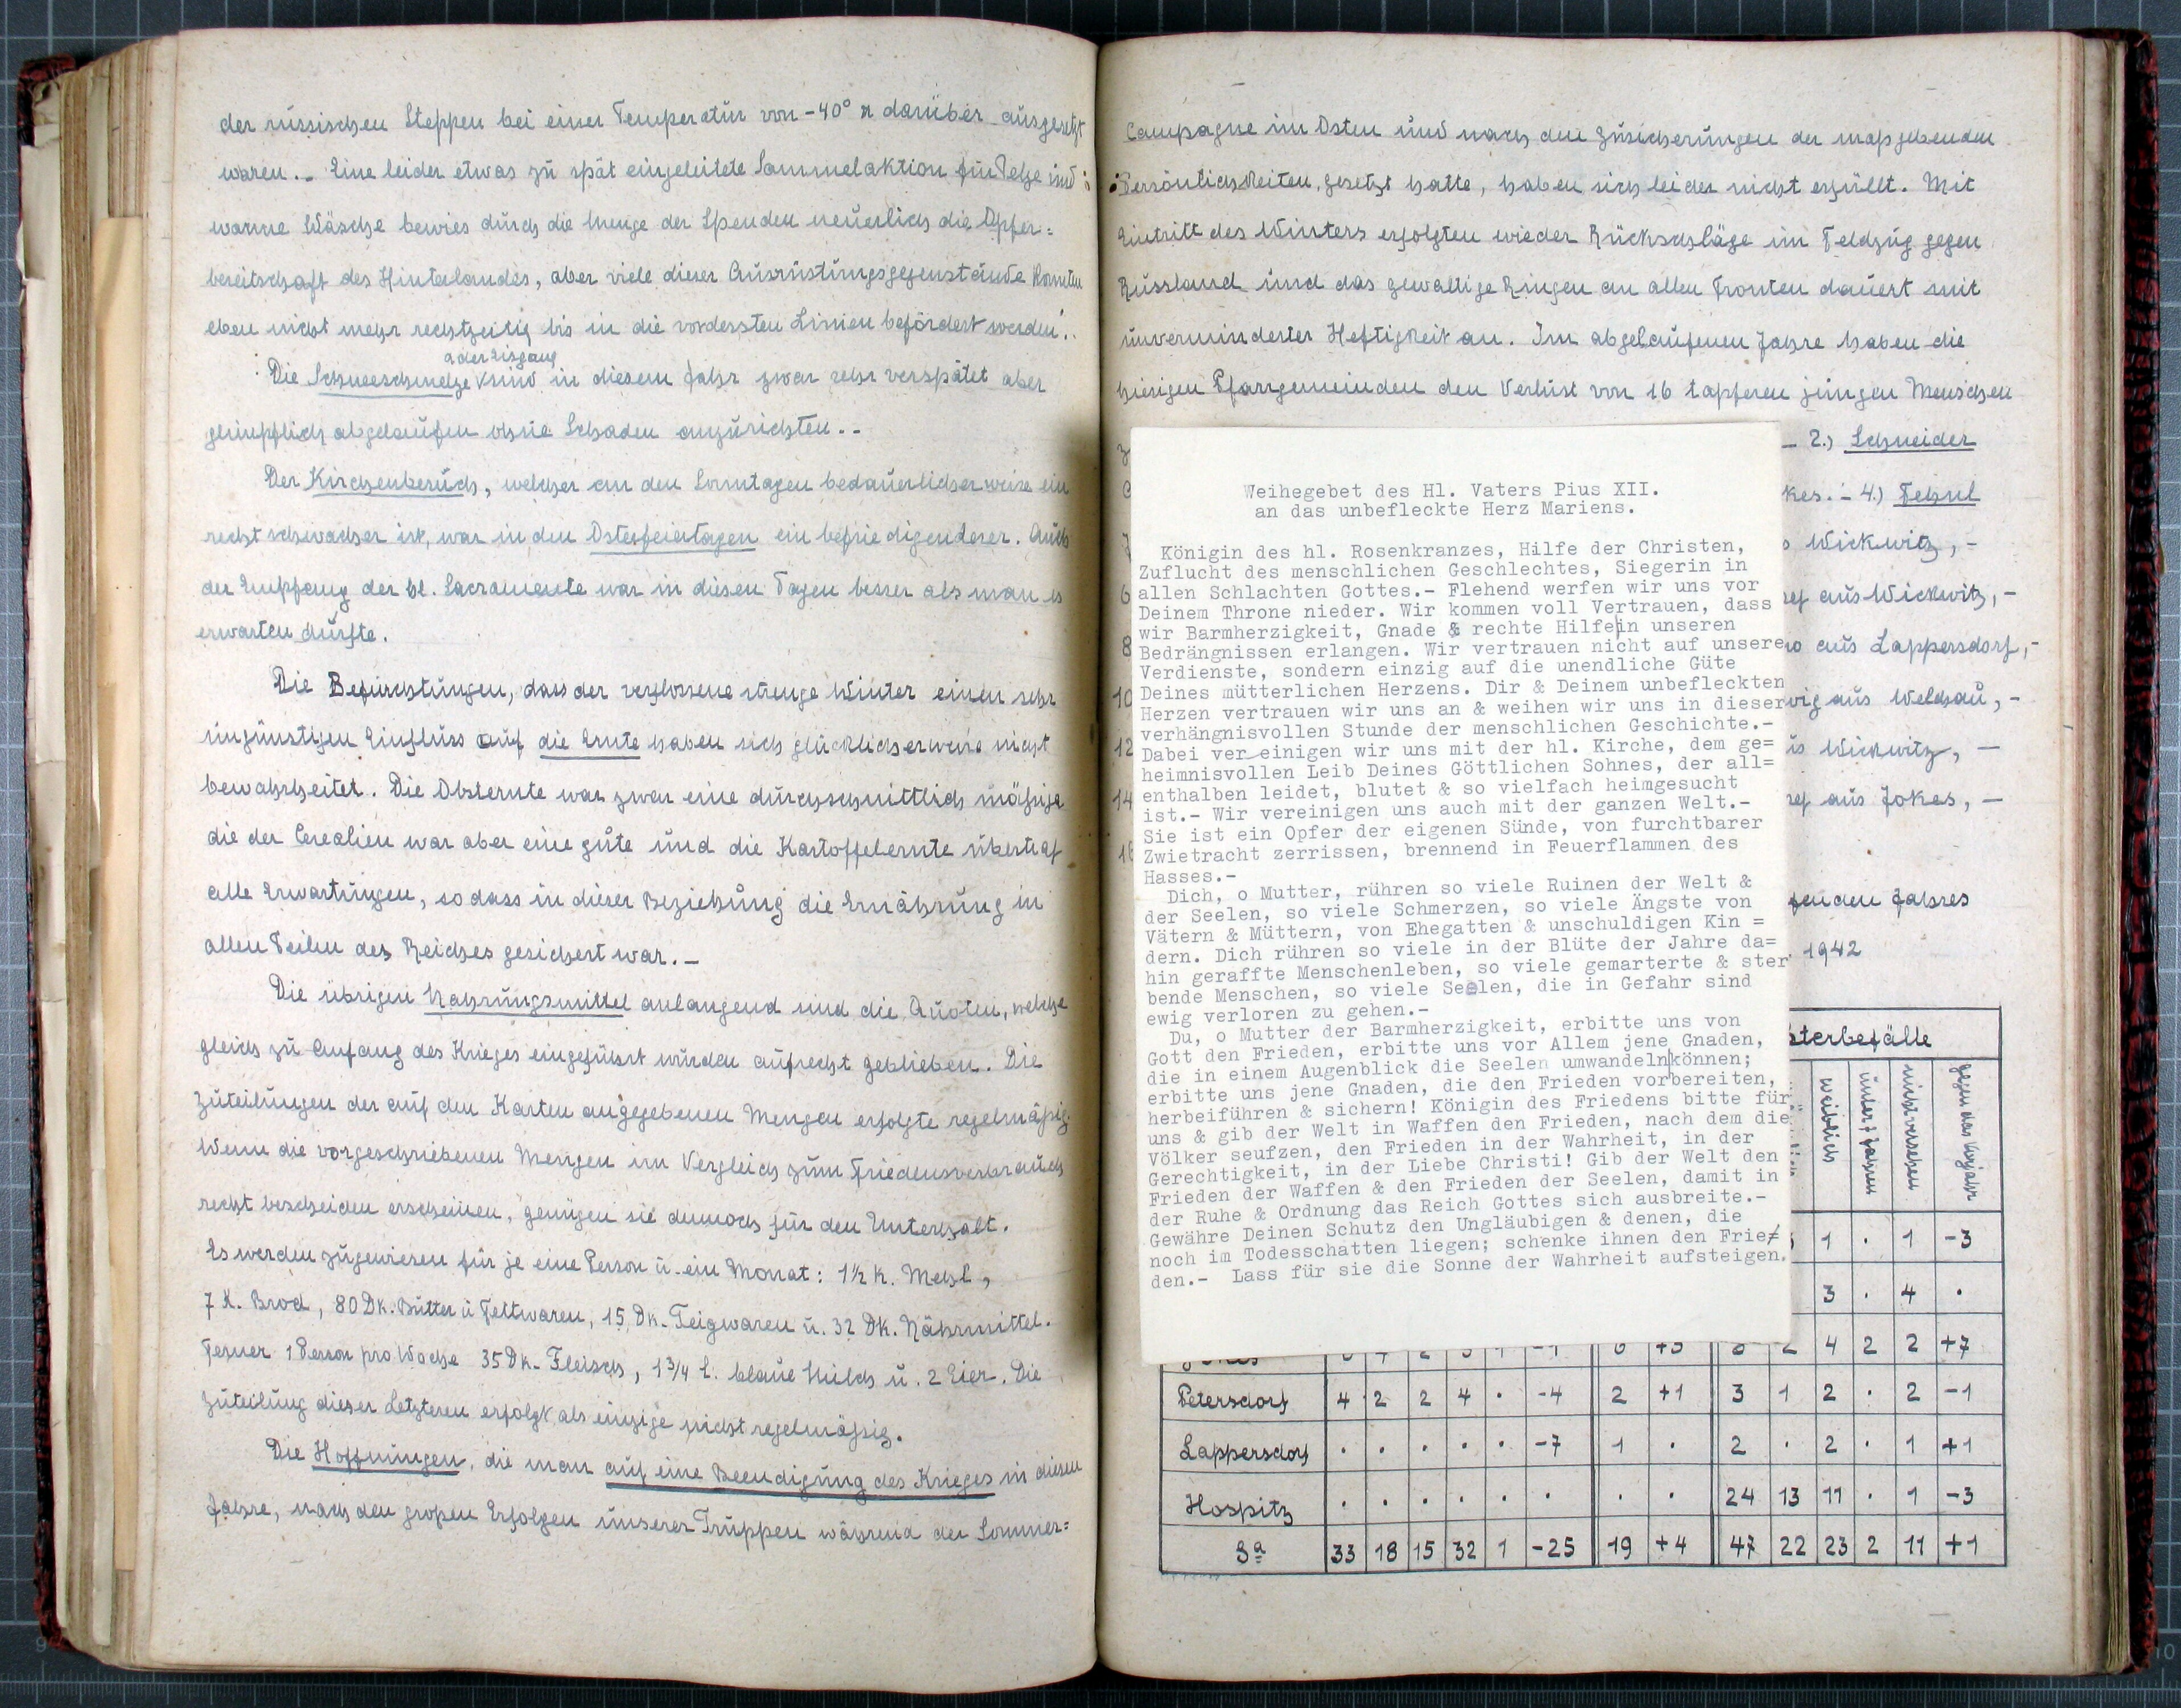 der russischen Steppen bei einer Temperatur von -40° u darüber ausgesetzt
waren.- Eine leider etwas zu spät eingeleitete Sammelaktion für Pelze und
warme Wäsche bewies durch die Menge der Spenden neuerlich die Opfer=
bereitschaft des Hinterlandes, aber viele dieser Ausrüstungsgegenstände konnten
eben nicht mehr rechtzeitig bis in die vordersten Linien befördert werden.
u der Eisgang
Die Schneeschmelze sind in diesem Jahr zwar sehr verspätet aber
glimpflich abgelaufen ohne Schaden anzurichten.-
Der Kirchenbesuch, welcher an den Sonntagen bedauerlicherweise ein
recht schwacher ist, war in den Osterfeiertagen ein befriedigenderer. Auch
der Empfang der hl. Sacramente war in diesen Tagen besser als man es
erwarten durfte.
Die Befürchtungen, dass der verflossene strenge Winter einen sehr
ungünstigen Einfluss auf die Ernte haben sich glücklicherweise nicht
bewahrheitet. Die Obsternte war zwar eine durchschnittlich mäßige
die der Cerealien war aber eine gute und die Kartoffelernte übertraf
alle Erwartungen, so dass in dieser Beziehung die Ernährung in
allen Teilen des Reiches gesichert war.-
Die übrigen Nahrungsmittel anlangend sind die Quoten, welche
gleich zu Anfang des Krieges eingeführt wurden aufrecht geblieben. Die
Zuteilungen der auf den Karten angegebenen Mengen erfolgte regelmäßig.
Wenn die vorgeschriebenen Mengen im Vergleich zum Friedensverbrauch
recht bescheiden erscheinen, genügen sie dennoch für den Unterhalt.
Es werden zugewiesen für je eine Person u. ein Monat: 1½ K. Mehl,
7 K. Brod, 80 Dk. Butter u Fettwaren, 15 Dk. Teigwaren u. 32 Dk. Nährmittel.
Ferner 1 Person pro Woche 35 Dk. Fleisch, 1 3/4 L. blaue Milch u. 2 Eier. Die
Zuteilung dieser Letzteren erfolgt als einzige nicht regelmäßig.
Die Hoffnungen, die man auf eine Beendigung des Krieges in diesem
Jahre, nach den großen Erfolgen unserer Truppen während der Sommer=
Campagne im Osten und nach den Zusicherungen der maßgebenden
Persönlichkeiten, gesetzt hatte, haben sich leider nicht erfüllt. Mit
Eintritt des Winters erfolgten wieder Rückschläge im Feldzug gegen
Russland und das gewaltige Ringen an allen Fronten dauert mit
unverminderter Heftigkeit an. Im abgelaufenen Jahre haben die
hiesigen Pfarrgemeinden den Verlust von 16 tapferen jungen Menschen
- 2.) Schneider
kes. - 4.)
Wickwitz, -
6 aus Wickwitz, -
8 aus Lappersdorf, -
10 wig aus Welchau, -
12 Wickwitz, -
14 aus Jokes, -
16
fenden Jahres
1942
Weihegebet des Hl. Vaters Pius XII.
an das unbefleckte Herz Mariens.
Königin des hl. Rosenkranzes, Hilfe der Christen,
Zuflucht des menschlichen Geschlechtes, Siegerin in
allen Schlachten Gottes.- Flehend werfen wir uns vor
Deinem Throne nieder. Wir kommen voll Vertrauen, dass
wir Barmherzigkeit, Gnade & rechte Hilfe in unseren
Bedrängnissen erlangen. Wir vertrauen nicht auf unsere
Verdienste, sondern einzig auf die unendliche Güte
Deines mütterlichen Herzens. Dir & Deinem unbefleckten
Herzen vertrauen wir uns an & weihen wir uns in dieser
verhängnisvollen Stunde der menschlichen Geschichte.-
Dabei ver einigen wir uns mit der hl. Kirche, dem ge=
heimnisvollen Leib Deines Göttlichen Sohnes, der all=
enthalben leidet, blutet & so vielfach heimgesucht
ist.- Wir vereinigen uns auch mit der ganzen Welt.-
Sie ist ein Opfer der eigenen Sünde, von furchtbarer
Zwietracht zerrissen, brennend in Feuerflammen des
Hasses.-
Dich, o Mutter, rühren so viele Ruinen der Welt &
der Seelen, so viele Schmerzen, so viele Ängste von
Vätern & Müttern, von Ehegatten & unschuldigen Kin =
dern. Dich rühren so viele in der Blüte der Jahre da=
hin geraffte Menschenleben, so viele gemarterte & ster
bende Menschen, so viele Seelen, die in Gefahr sind
ewig verloren zu gehen.-
Du, o Mutter der Barmherzigkeit, erbitte uns von
Gott den Frieden, erbitte uns vor Allem jene Gnaden,
die in einem Augenblick die Seelen umwandeln können;
erbitte uns jene Gnaden, die den Frieden vorbereiten,
herbeiführen & sichern! Königin des Friedens bitte für
uns & gib der Welt in Waffen den Frieden, nach dem die
Völker seufzen, den Frieden in der Wahrheit, in der
Gerechtigkeit, in der Liebe Christi! Gib der Welt den
Frieden der Waffen & den Frieden der Seelen, damit in
der Ruhe & Ordnung das Reich Gottes sich ausbreite.-
Gewähre Deinen Schutz den Ungläubigen & denen, die
noch im Todesschatten liegen; schenke ihnen den Frie=
den.- Lass für sie die Sonne der Wahrheit aufsteigen.
sterbefälle
weiblich unter 7 Jahren nicht versehen gegen das Vorjahr
1 . 1 -3
3 . 4 .
4 2 2 +7
Petersdorf 4 2 2 4 . -4 2 +1 3 1 2 . 2 -1
Lappersdorf . . . . . -7 1 . 2 . 2 . 1 +1
Hospitz . . . . . . . . 24 13 11 . 1 -3
Sa 33 18 15 32 1 -25 19 +4 47 22 23 2 11 +1